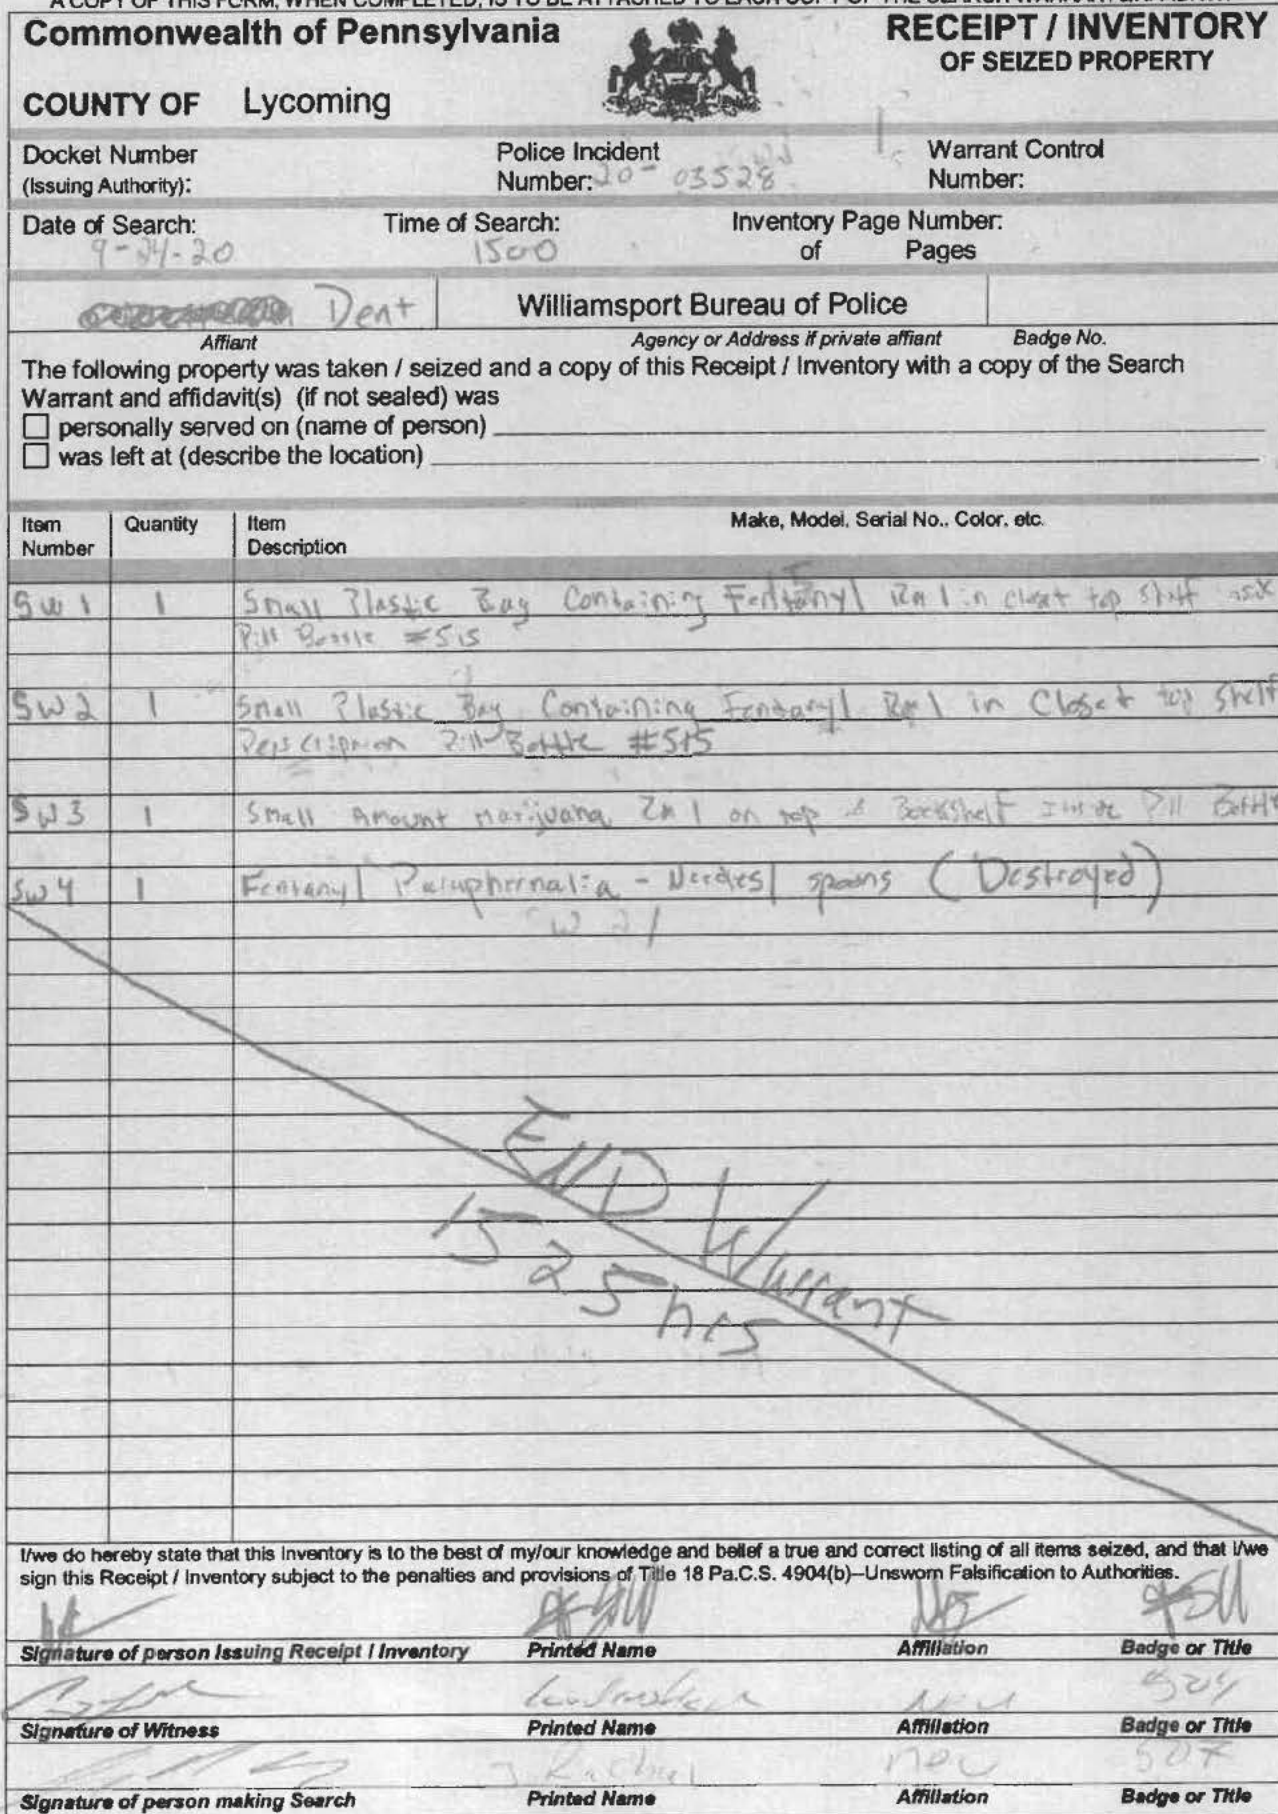 A COPY OF THIS FORM, WHEN COMPLETED, IS TO BE ATTACHED TO EACH COPY OF THE SEARCH WARRANT
Commonwealth of Pennsylvania
RECEIPT / INVENTORY
OF SEIZED PROPERTY
COUNTY OF Lycoming
Docket Number
(Issuing Authority):
Police Incident
Number: 20-03528
Warrant Control
Number:
Date of Search:
9-24-20
Time of Search:
1500
Inventory Page Number:
of Pages
Dent
Williamsport Bureau of Police
Affiant
Agency or Address if private affiant
Badge No.
The following property was taken / seized and a copy of this Receipt / Inventory with a copy of the Search
Warrant and affidavit(s) (if not sealed) was
personally served on (name of person)
was left at (describe the location)
Item
Number
Quantity
Item
Description
Make, Model, Serial No., Color, etc.
SW1 1 Small Plastic Bag Containing Fentanyl Rm 1 in closet top shelf
Pill Bottle #515
SW2 1 Small Plastic Bag Containing Fentanyl Rm 1 in Closet top shelf
Pill Bottle #515
SW3 1 Small Amount marijuana Rm 1 on top Bookshelf Inside Pill Bottle
SW4 1 Fentanyl Paraphernalia - Needles/ spoons (Destroyed)
END Warrant
1525 hrs
I/we do hereby state that this Inventory is to the best of my/our knowledge and belief a true and correct listing of all items seized, and that I/we
sign this Receipt / Inventory subject to the penalties and provisions of Title 18 Pa.C.S. 4904(b)–Unsworn Falsification to Authorities.
Signature of person Issuing Receipt / Inventory
Printed Name
Affiliation
Badge or Title
Signature of Witness
Printed Name
Affiliation
Badge or Title
507
Signature of person making Search
Printed Name
Affiliation
Badge or Title